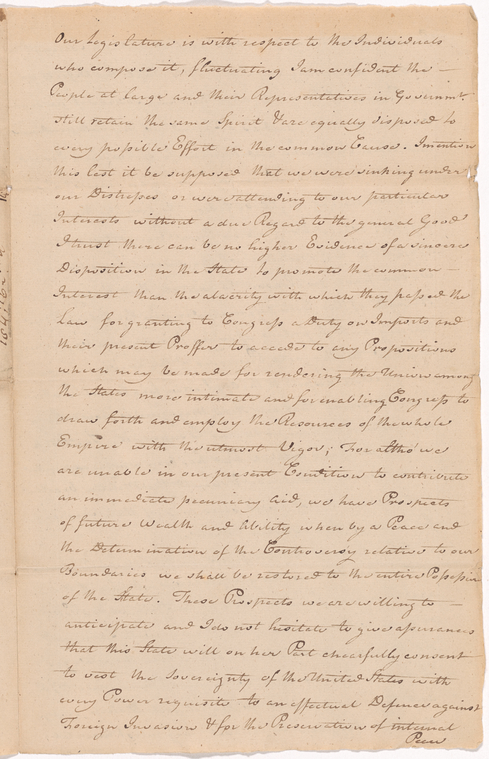 Our Legislature is with respect to the Individuals
who compose it, fluctuating I am confident the —
People at large and their Representatives in Governmt.
still retain the same Spirit & are equally disposed to
every possible Effort in the common Cause. I mention
this lest it be supposed that we were sinking under
our Distresses or were attending to our particular
Interests without a due Regard to the general Good
I trust there can be no higher Evidence of a sincere
Disposition in the State to promote the common —
Interest than the alacrity with which they passed the
Law for granting to Congress a Duty on Imports and
their present Proffer to accede to any Propositions
which may be made for rendering the Union among
the States more intimate and for enabling Congress to
draw forth and employ the Resources of the whole
Empire with the utmost Vigor; For altho' we
are unable in our present Condition to contribute
an immediate pecuniary Aid, we have Prospects
of future Wealth and Ability when by a Peace and
the Determination of the Controversy relative to our
Boundaries we shall be restored to the entire Possession
of the State. These Prospects we are willing to —
anticipate and I do not hesitate to give assurances
that this State will on her Part chearfully consent
to vest the Sovereignty of the United States with
every Power requisite to an effectual Defence against
Foreign Invasion & for the Preservation of internal
Peace